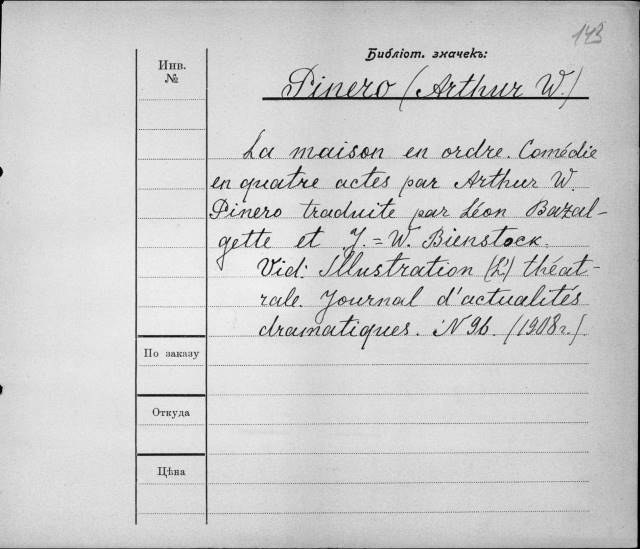 143
Библіот. значекъ:
Инв.
№
Pinero (Arthur W.)
La maison en ordre. Comédie
en quatre actes par Arthur W.
Pinero traduite par Léon Bazal-
gette et J.=W. Bienstock.
Vid: Illustration (L') théat-
rale. Journal d'actualités
dramatiques. N 96. (1908 г.)
По заказу
Откуда
Цѣна